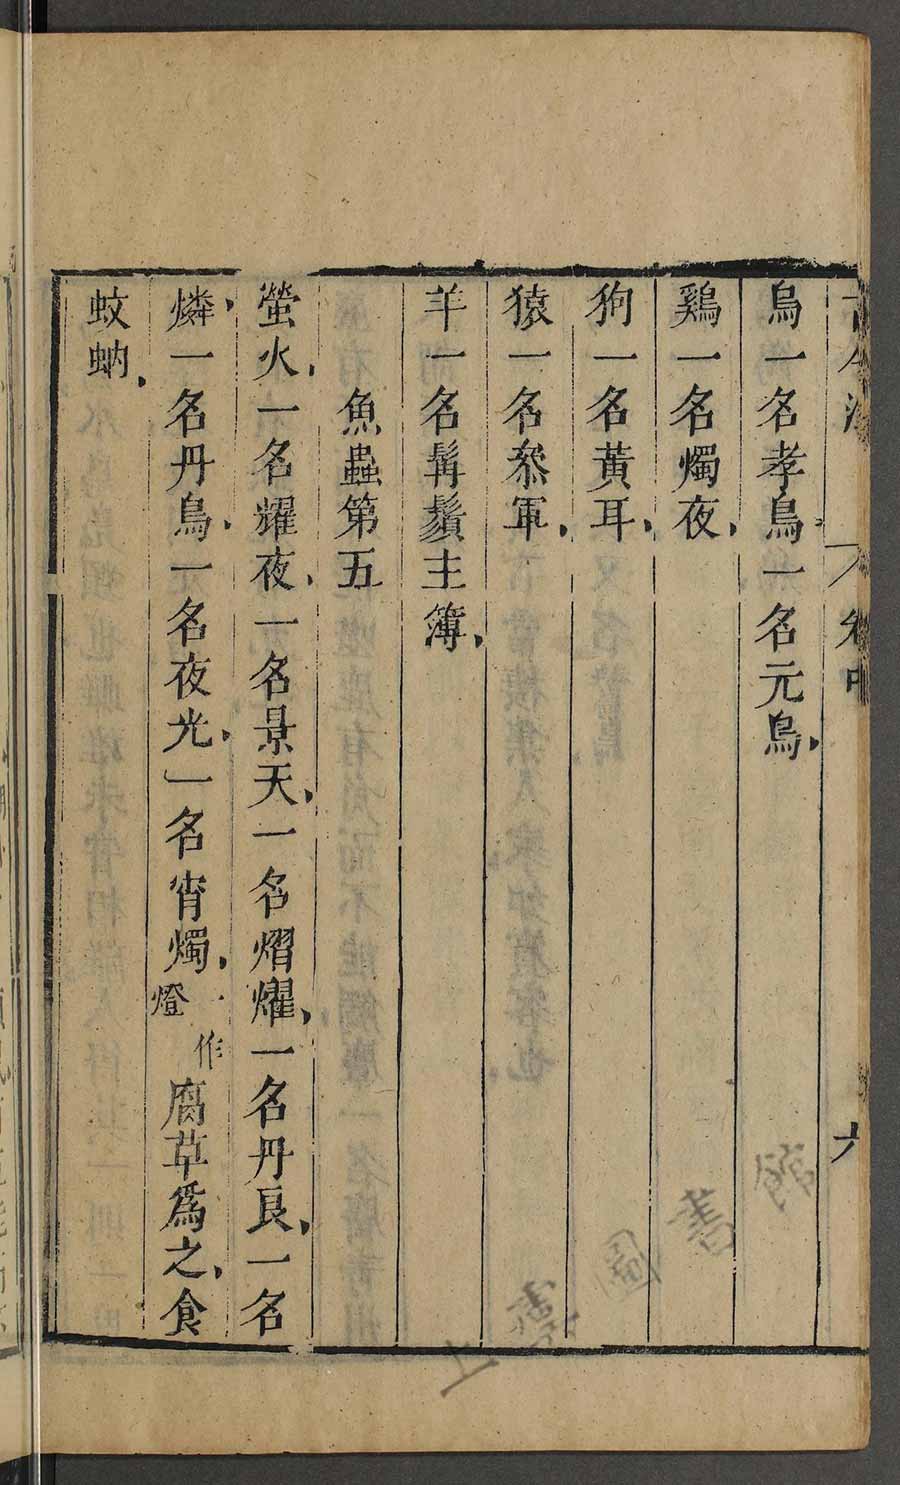 古今注 卷中 六
烏一名孝烏一名元烏
鷄一名燭夜
狗一名黃耳
猿一名叅軍
羊一名髯鬚主簿
魚蟲第五
螢火一名耀夜一名景天一名熠燿一名丹良一名
燐一名丹鳥一名夜光一名宵燭一作燈腐草爲之食
蚊蚋